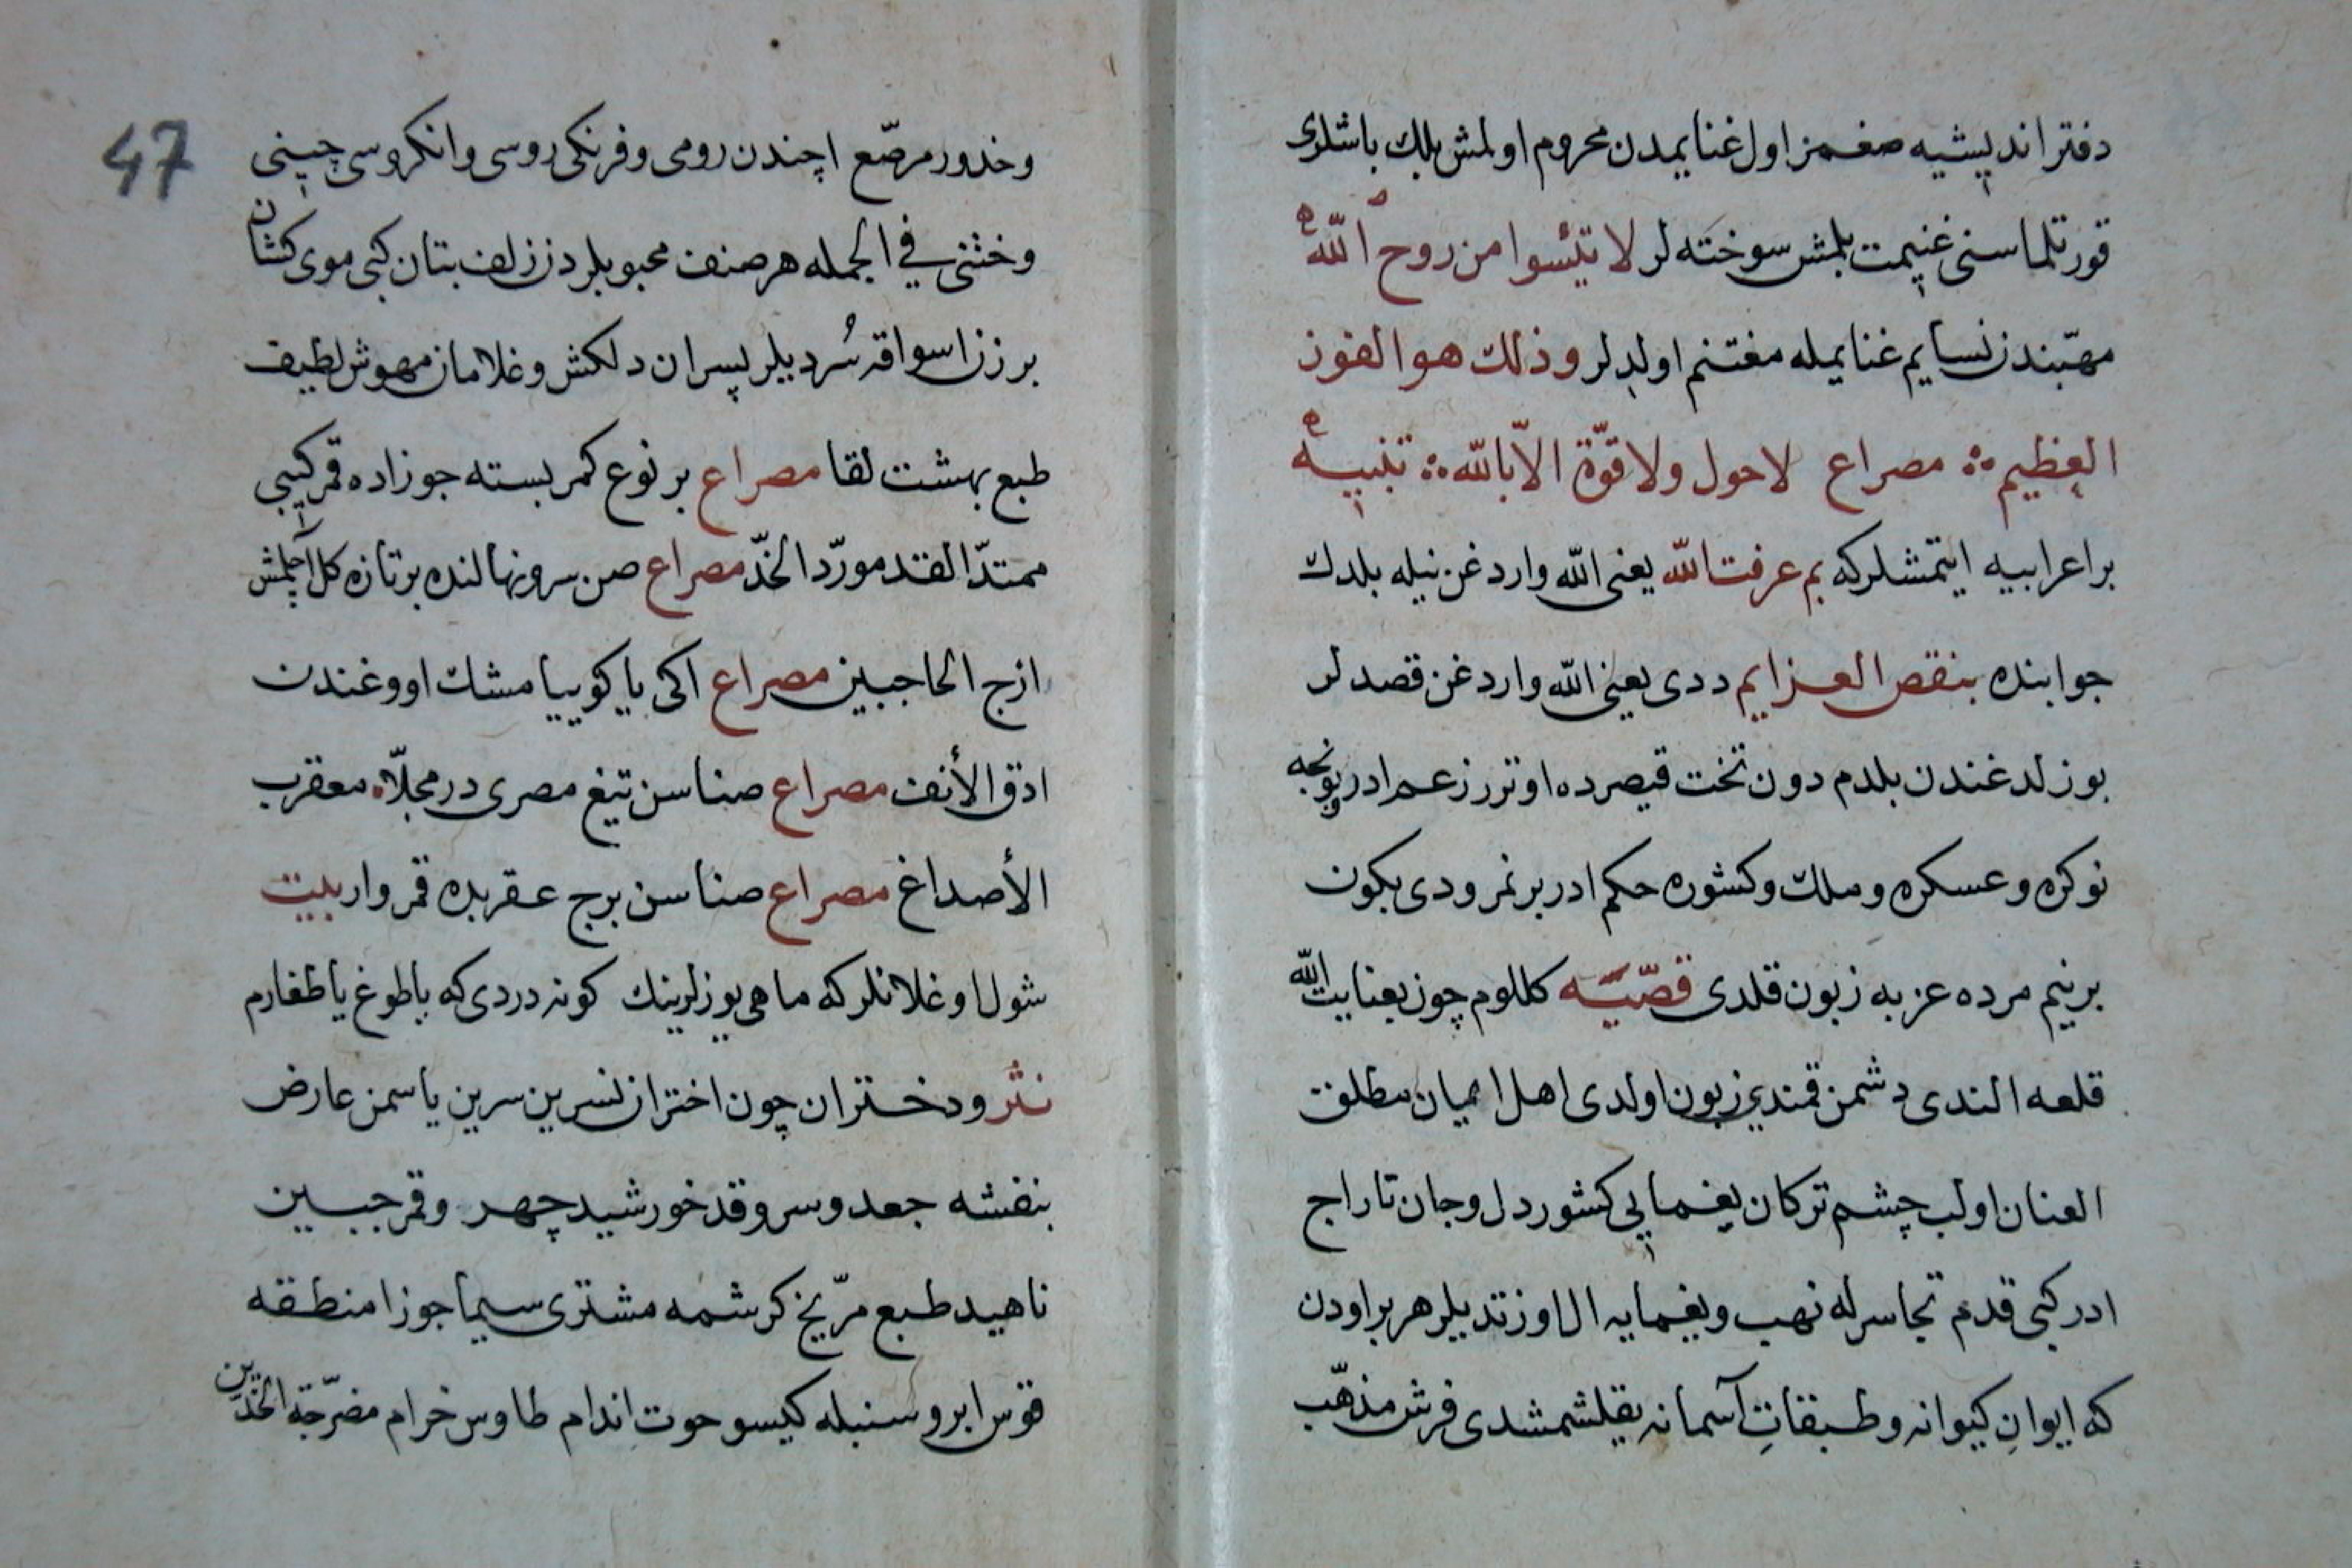 دفتر اندیشیه صغمز اول غنایمدن محروم اولمش بلك باشلری
قورتلماسنی غنیمت بلمش سوخته لر لا تیئسوا من روح الله
مهبندن نسایم غنایمله مغتنم اولدلر وذلك هو الفوز
العظیم مصراع لا حول ولا قوّة الاّ بالله تنبیه
بر اعرابیه ایتمشلركه بم عرفت الله یعنی الله واردغن نیله بلدك
جوابنده بنقص العزایم ددی یعنی الله واردغن قصدلر
بوزلدغندن بلدم دون تخت قیصرده اوترر زعم ادر بونجه
نوكره وعسكره وملك وكشوره حكم ادر بر نمرودی بكون
بر نیم مرده عزبه زبون قلدی قصّیه كللوم چون بعنایت الله
قلعه الندی دشمن قمندیز زبون اولدی اهل ایمان مطلق
العنان اولب چشم تركان یغمایی كشور دل وجان تاراج
ادر كبی قدم تجاسرله نهب ویغمایه ال اوزتدیلر هر بر اودن
كه ایوانِ كیوانه وطبقاتِ آسمانه یقلشمشدی فرش مذهّب
47
وخدور مرصّع اچندن رومی وفرنكی روسی وانكروسی چینی
وخثنی فی الجمله هر صنف محبوبلردن زلف بتان كبی موی كشان
برزن اسواقه سُردیلر پسران دلكش وغلامان مهوش لطیف
طبع بهشت لقا مصراع بر نوع كمر بسته جوزاده قمر كیبی
ممتدّ القد مورّد الخدّ مصراع صن سرونهالنده بر تازه كل آچلمش
ازج الحاجبین مصراع اكی یا كویییا مشك اووغندن
ادق الأنف مصراع صناسن تیغ مصری در مجلّا معقرب
الأصداغ مصراع صناسن برج عقربده قمر وار بیت
شول اوغلانلركه ماهی یوزلرینك كونه دردی كه یا طوغ یا طغارم
نثر ودختران چون اختران نسرین سرین یاسمن عارض
بنفشه جعد وسرو قد خورشید چهر وقمر جبین
ناهید طبع مرّیخ كرشمه مشتری سیما جوزا منطقه
قوس ابرو سنبله كیسو حوت اندام طاوس خرام مضرّجة الخدّین